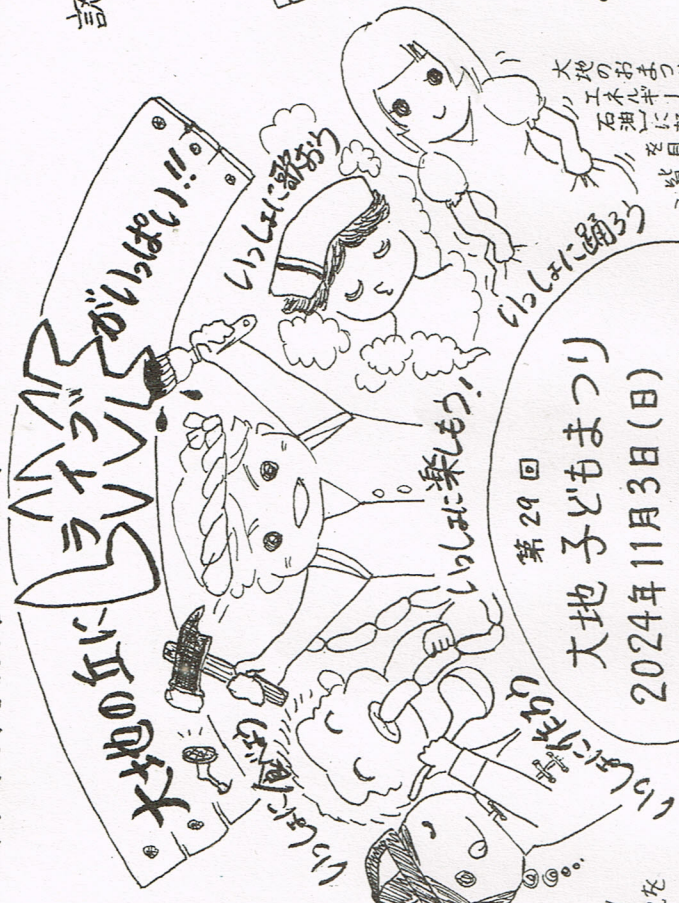 大地の丘に
ライブ
がいっぱい!!
いっしょに歌おう
いっしょに踊ろう
いっしょに楽しもう!
いっしょに食べよう
いっしょに作ろう
第29回
大地 子どもまつり
2024年11月3日(日)
大地のおまつ
エネルギー
石油に
を